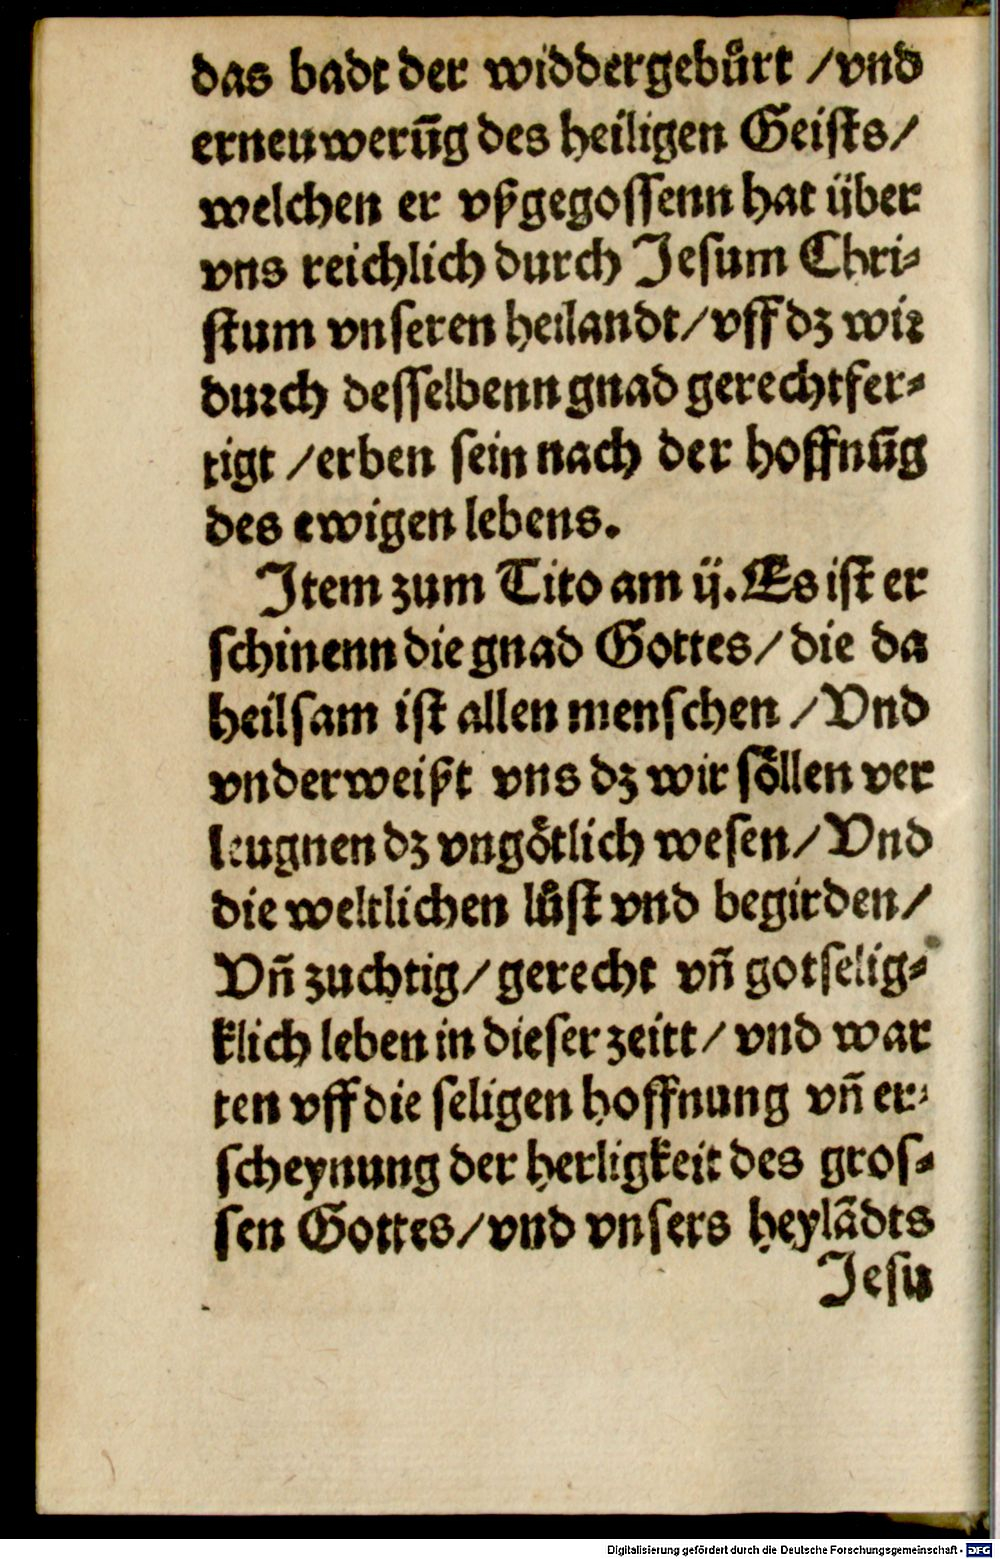 das badt der widdergebuͤrt /vnd
erneuwerūg des heiligen Geiſts/
welchen er vßgegoſſenn hat über
vns reichlich durch Jeſum Chri⸗
ſtum vnſeren heilandt/vff dz wir
durch deſſelbenn gnad gerechtfer⸗
tigt /erben ſein nach der hoffnūg
des ewigen lebens.
Jtem zum Tito am ij. Es iſt er
ſchinenn die gnad Gottes/ die da
heilſam iſt allen menſchen /Vnd
vnderweißt vns dz wir ſoͤllen ver
leugnen dz vngoͤtlich weſen/Vnd
die weltlichen luͤſt vnd begirden/
Vn̄ zuchtig/gerecht vn̄ gotſelig⸗
klich leben in dieſer zeitt/ vnd war
ten vff die ſeligen hoffnung vn̄ er⸗
ſcheynung der herligkeit des groſ⸗
ſen Gottes/vnd vnſers heylādts
Jeſu
Digitalisierung gefördert durch die Deutsche Forschungsgemeinschaft - DFG